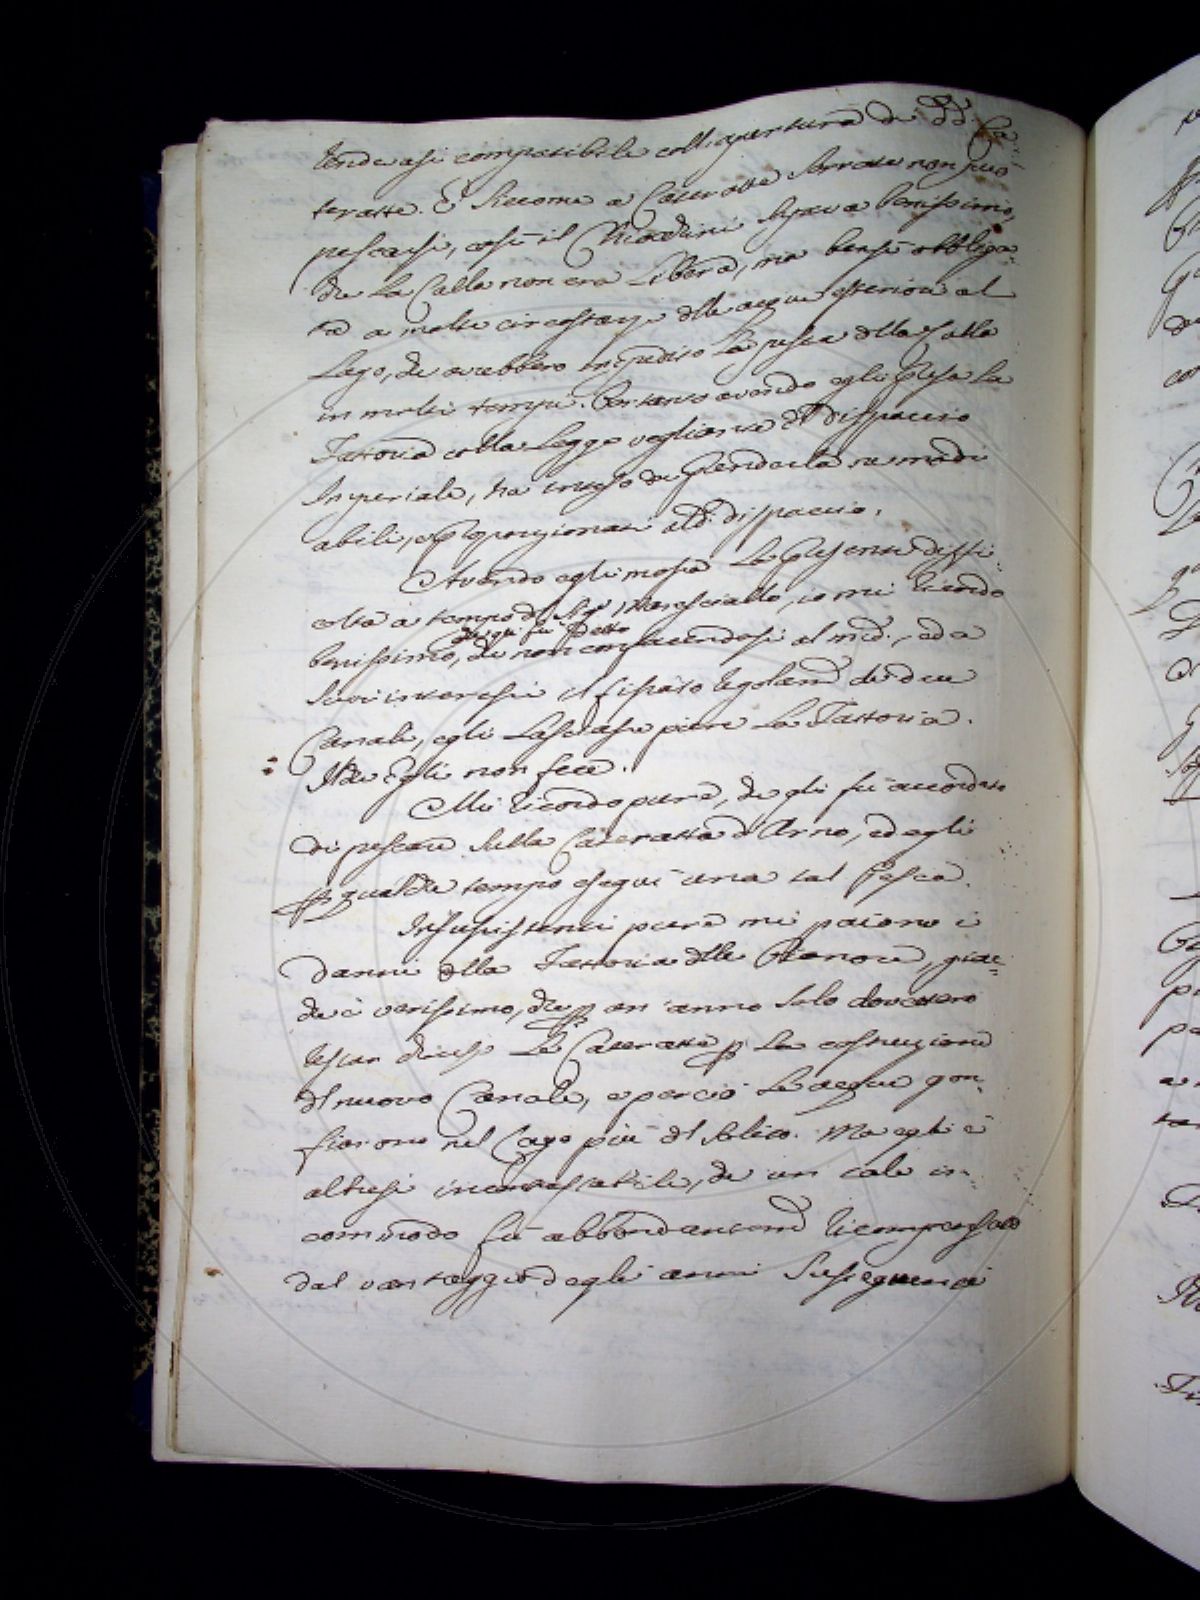 rendeasi compatibile coll'apertura di dd. Ca-
teratte. E siccome a Cateratte serrate non può
pescarsi, così il Chiodini sapeva benissimo,
che la Calla non era libera, ma bensì obbliga-
ta a molte circostanze dlle acque esteriori al
Lago, che avrebbero impedito la pesca dlla Calla
in molti tempi. Pertanto avendo egli presa la
Fattoria colla Legge vegliante dl dispaccio
Imperiale, ha inteso di prenderla ne modi
abili, e proporzionati al dº dispaccio.
Avendo egli mossa la presente diffi-
coltà a tempo dl Sigr Maresciallo, io mi ricordo
benissimo, che gli fu detto
che non confacendosi al med., ed a
suoi interessi il fissato regolamto de due
Canali, egli lasciasse pure la Fattoria.
Il che Egli non fece.
Mi ricordo pure, che gli fu accordato
di pescare sulla Cateratta d'Arno, ed egli
p qualche tempo eseguì una tal pesca.
Insussistenti pure mi paiono i
danni dlla Fattoria dlle, giac-
che è verissimo, che p un anno solo dovettero
restar chiuse le Cateratte p la costruzione
dl nuovo Canale, e perciò le acque gon-
fiorono nel Lago più dl solito. Ma egli è
altresì incontrastabile, che un tale in-
commodo fu abbondantemte ricompensato
dal vantaggio degli anni susseguenti